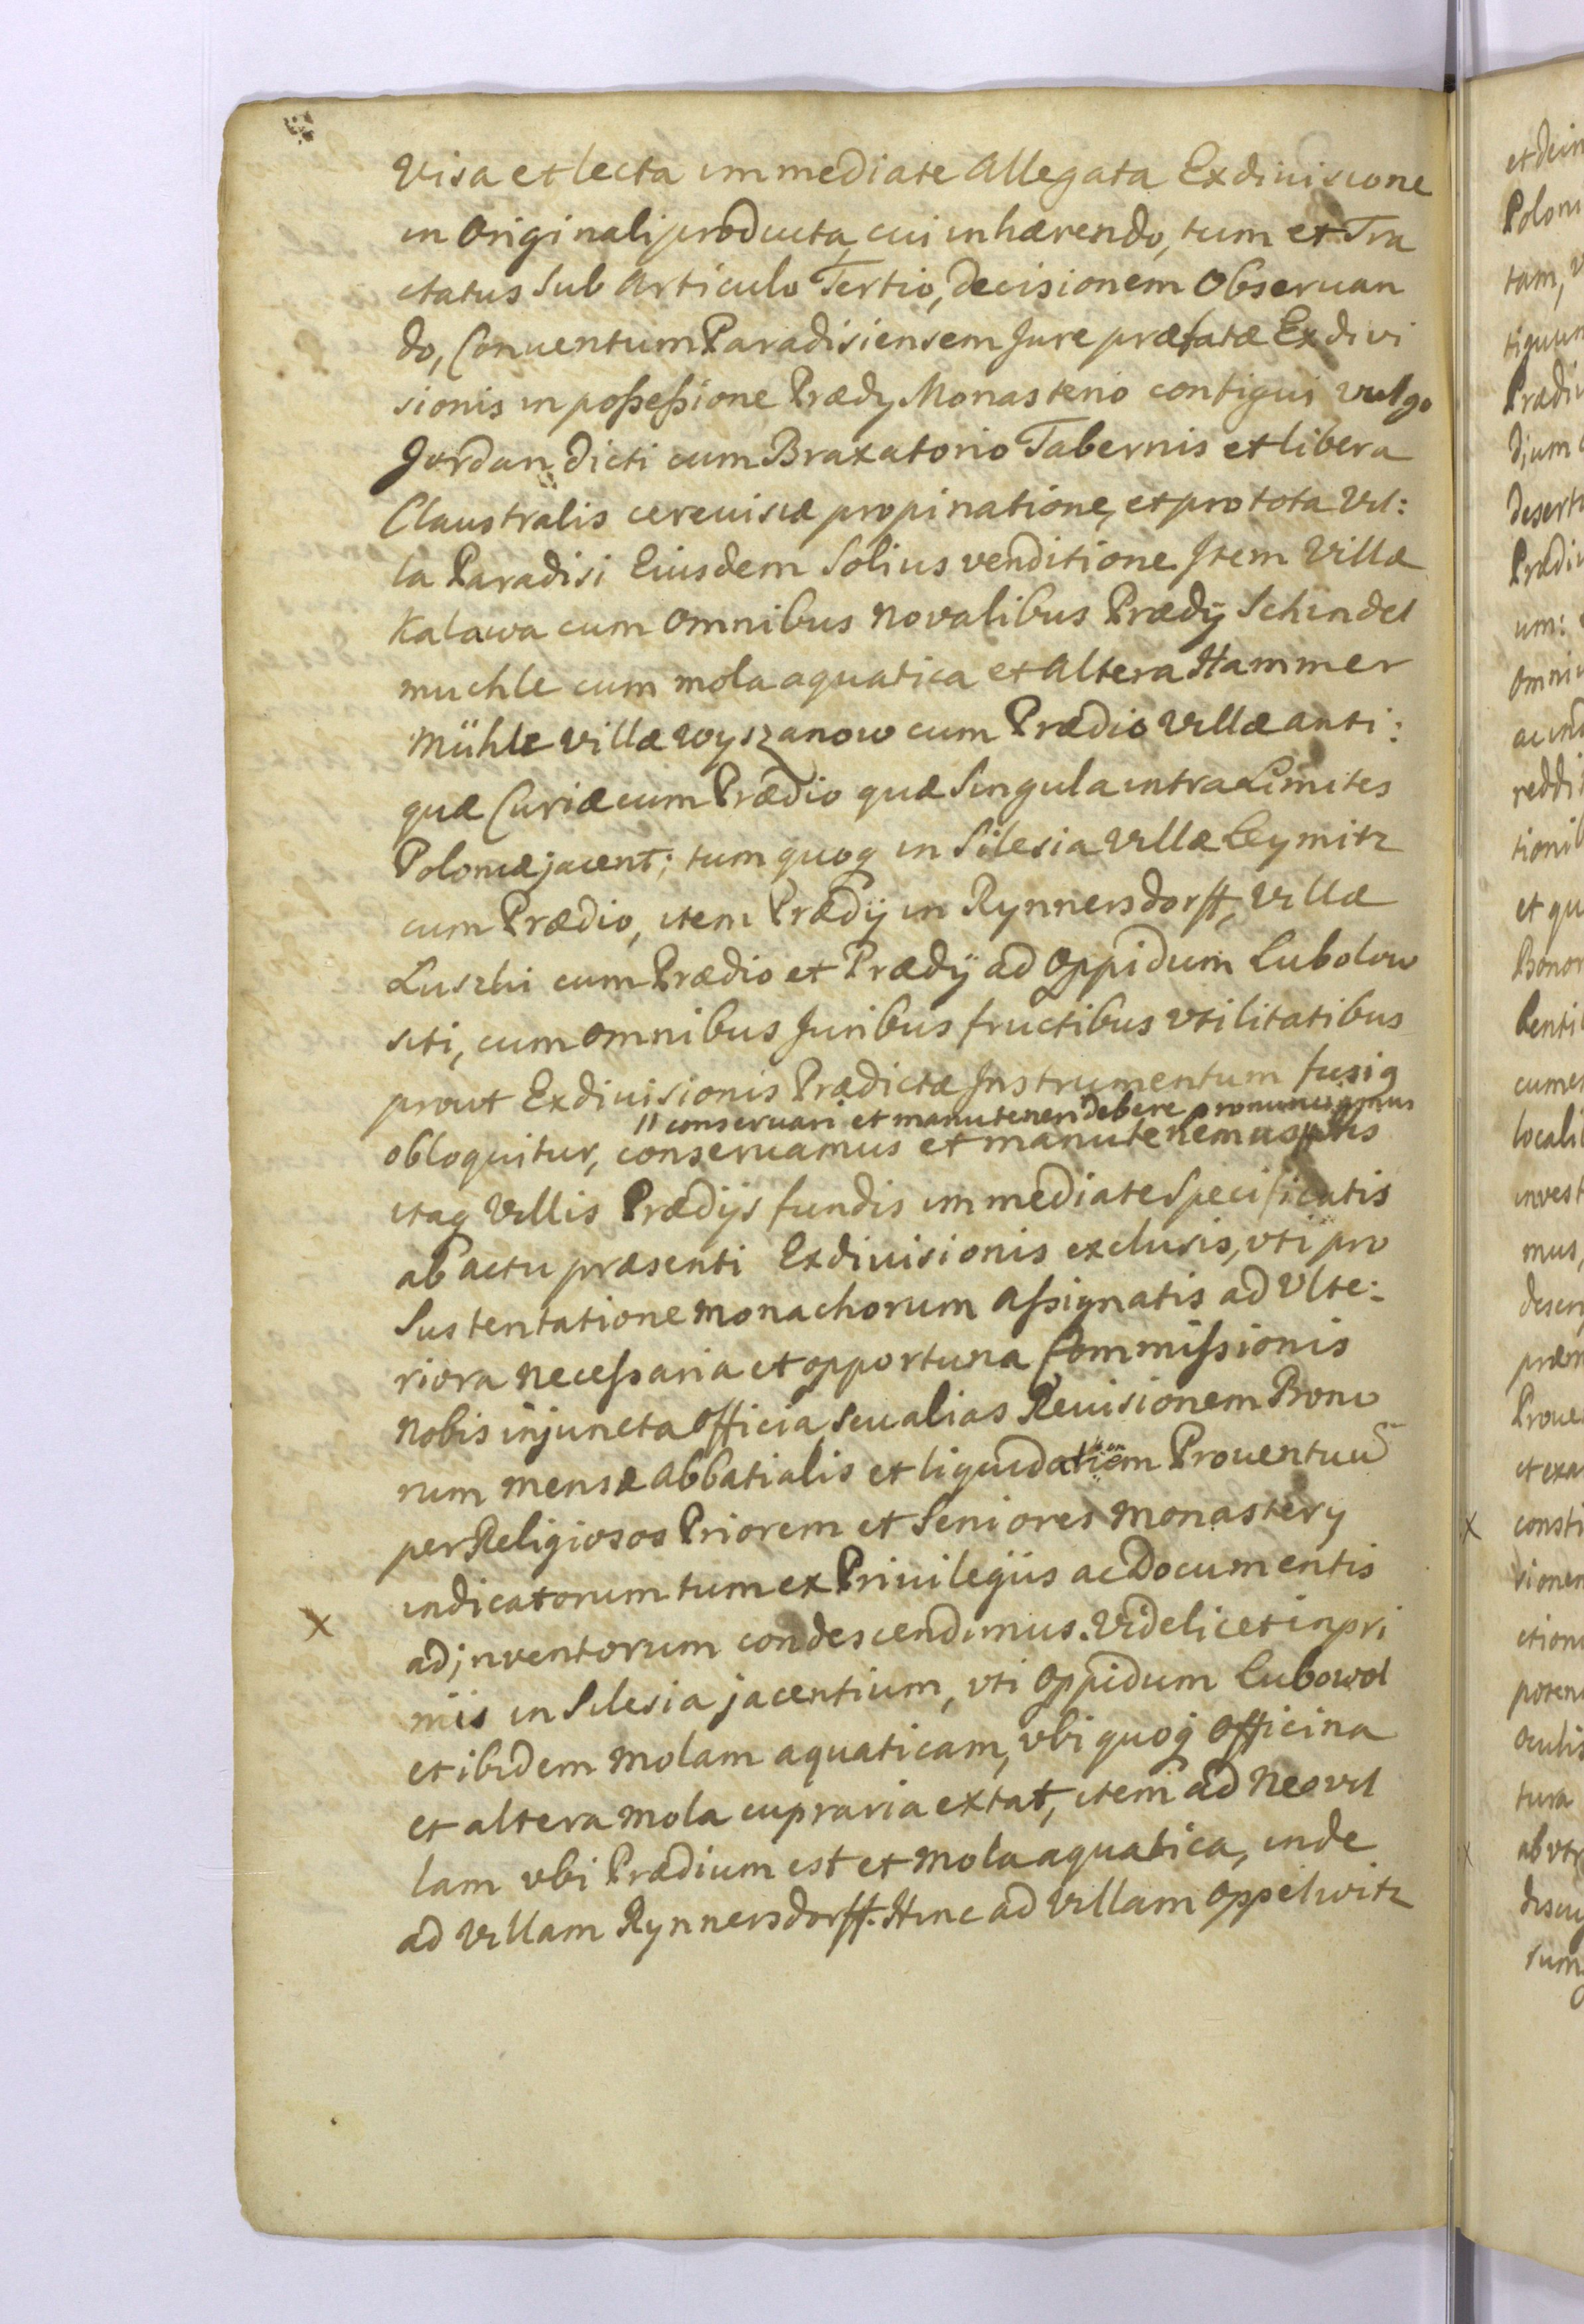 Visa et lecta immediate Allegata Exdiuisione
in Originali producta, cui inhærendo, tum et Tra
ctatus Sub Articulo Tertio, decisionem Obseruan
do, Conuentum Paradisiensem Jure præfatæ Exdivi
sionis in poßeßione Prædy Monasterio contigui vulgo
Jordan dicti cum Braxatorio Tabernis et libera
Claustralis cereuisiæ propinatione, et pro tota Vil:
la Paradisi Eiusdem Solius venditione Item Villæ
Kalawa cum Omnibus Novalibus Prædÿ Schindel
muchle cum mola aquatica et Altera Hammer
Mühle villæ Wyszanow cum Prædio Villæ anti:
quæ Curiæ cum Prædio quæ Singula intra Limites
Poloniæ jacent; tum quoq in Silesia Villæ Leymitz
cum Prædio, item Prædÿ in Rynnersdorff, Villæ
Luszki cum Prædio et Prædÿ ad Oppidum Lubolow
siti, cum omnibus Juribus fructibus vtilitatibus
prout Exdiuisionis Prædictæ Instrumentum fusiq
// conseruari et manuteneri debere pronunciamus
obloquitur, conseruamus et manutenemus
itaq Villis Prædijs fundis immediate Specificatis
ab actu præsenti Exdiuisionis exclusis, vti pro
Sustentatione Monachorum Aßignatis ad Vlte:
riora neceßaria et opportuna Commißionis
Nobis injuncta Officia, seu alias Reuisionem Bono
rum mensæ Abbatialis et liquidationem Prouentuu
per Religiosos Priorem et Seniores Monastery
indicatorum tum ex Priuilegiis ac Documentis
x
adjnventorum condescendimus. Videlicet inpri
mis in Silesia jacentium, vti Oppidum Lubowol
et ibidem Molam aquaticam, vbi quoq Officina
et altera Mola cupraria extat, item ad Neovil
lam vbi Prædium est et Mola aquatica, inde
ad Villam Rynnersdorff. Hinc ad Villam Oppelwitz